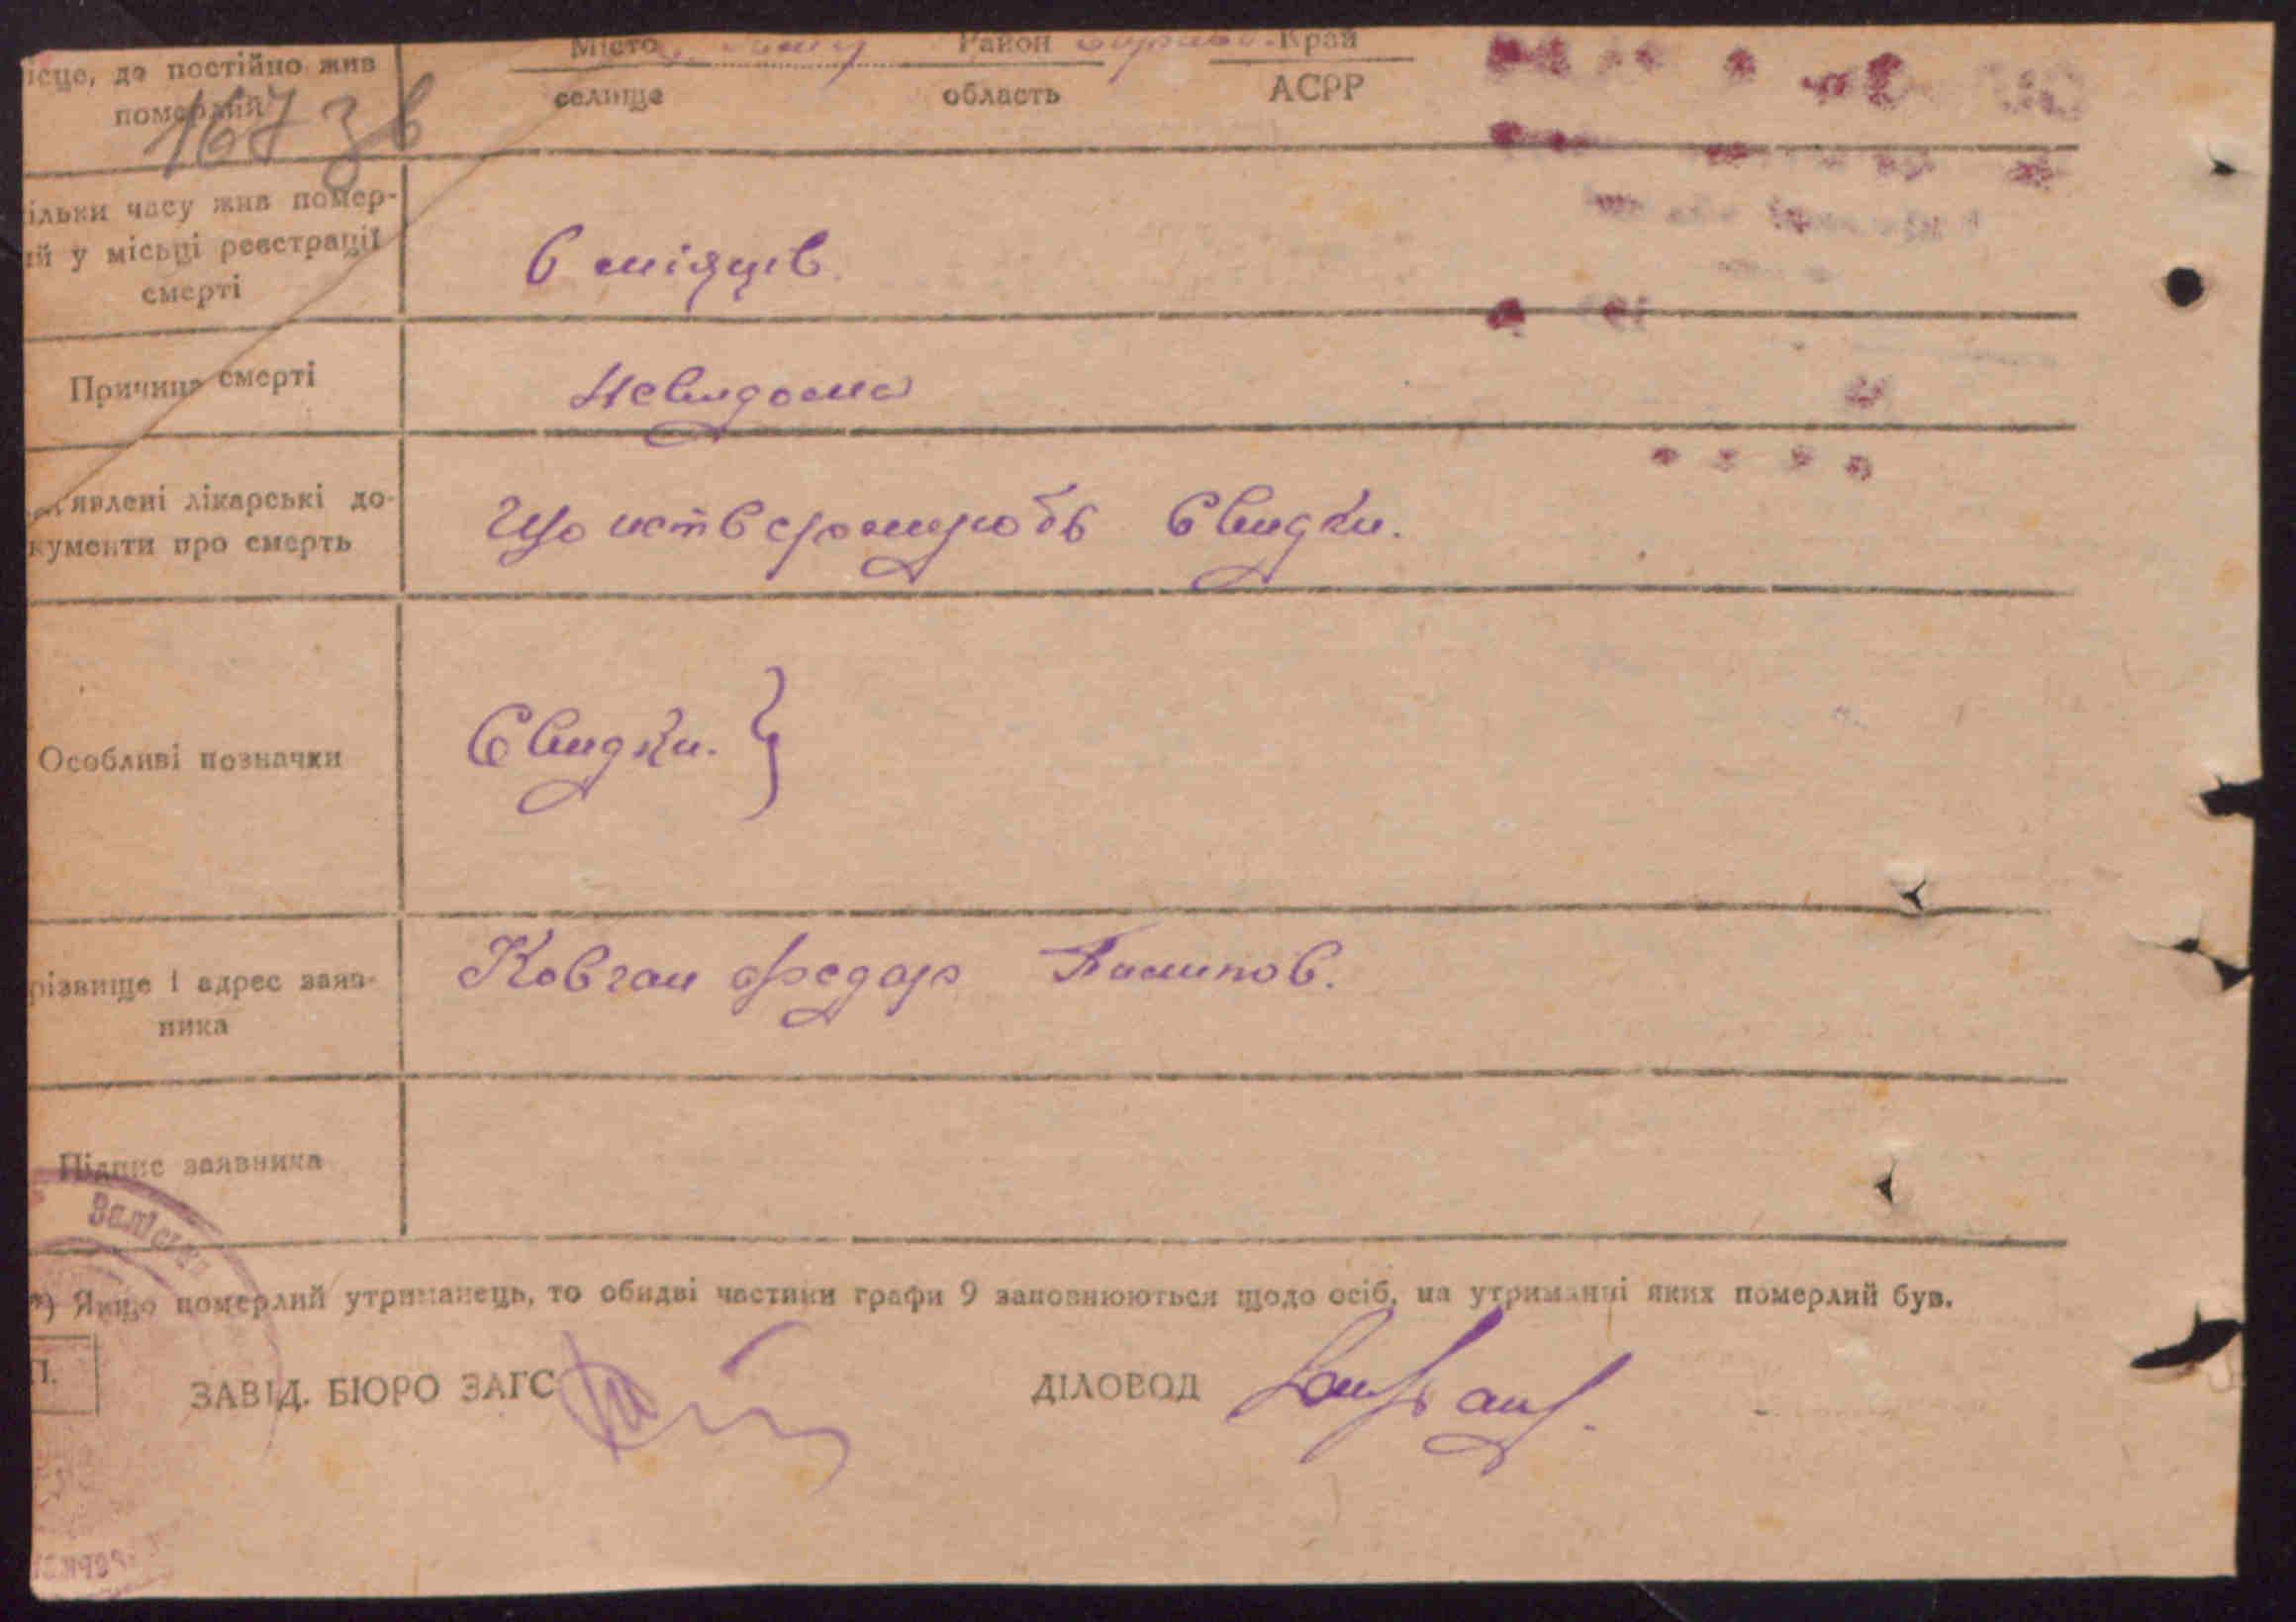 Місто Район Край
ісце, де постійно жив
померлий
селище область АСРР
167 зв
ільки часу жив помер-
ий у місьці реєстрації
смерті
6 місяців.
Причина смерті
Невидома
явлені лікарські до-
кументи про смерть
Що Свидки.
Особливі позначки
Свидки. }
різвище і адрес заяв-
ника
Ковган Федор
Підпис заявника
*) Якщо померлий утриманець, то обидві частини графи 9 заповнюються щодо осіб, на утриманні яких померлий був.
П.
ЗАВІД. БЮРО ЗАГС ДІЛОВОД